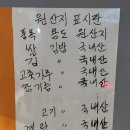 원산지 표시판
품목 용도 원산지
쌀 김밥 국내산
김 〃 국내산
고춧가루 〃 국내산
참기름 〃 국내산
고기 〃 국내산
계란 〃 국내산